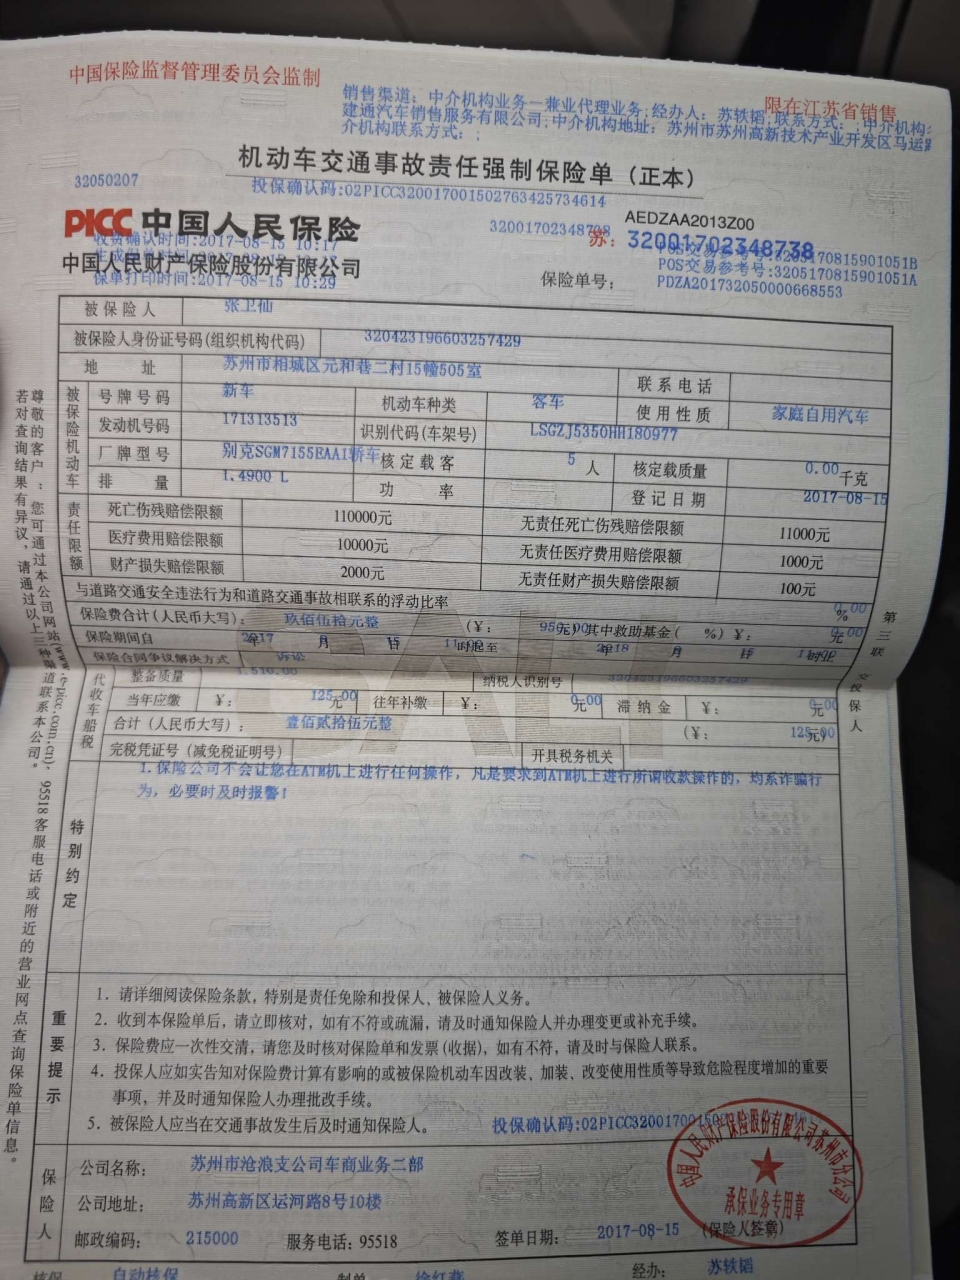 中国保险监督管理委员会监制
限在江苏省销售
销售渠道：中介机构业务—兼业代理业务;经办人：苏轶韬,联系方式：,中介机构:
建通汽车销售服务有限公司;中介机构地址：苏州市苏州高新技术产业开发区马运路
介机构联系方式：;
机动车交通事故责任强制保险单（正本）
32050207
投保确认码:02PICC320017001502763425734614
AEDZAA2013Z00
PICC 中国人民保险
32001702348738
苏：32001702348738
收费确认时间:2017-08-15 10:17
生成保单时间:2017-08-15
中国人民财产保险股份有限公司
保单打印时间:2017-08-15 10:29
POS交易参考号:32051708159010​51B
POS交易参考号:32051708159010​51A
保险单号： PDZA201732050000668553
被保险人 张卫仙
被保险人身份证号码(组织机构代码) 320423196603257429
地 址 苏州市相城区元和巷二村15幢505室 联系电话
被保险机动车
号牌号码 新车 机动车种类 客车 使用性质 家庭自用汽车
发动机号码 171313513 识别代码(车架号) LSGZJ5350HH180977
厂牌型号 别克SGM7155EAA1轿车 核定载客 5 人 核定载质量 0.00 千克
排 量 1.4900 L 功 率 登记日期 2017-08-15
责任限额
死亡伤残赔偿限额 110000元 无责任死亡伤残赔偿限额 11000元
医疗费用赔偿限额 10000元 无责任医疗费用赔偿限额 1000元
财产损失赔偿限额 2000元 无责任财产损失赔偿限额 100元
与道路交通安全违法行为和道路交通事故相联系的浮动比率 0.00 %
保险费合计(人民币大写)： 玖佰伍拾元整 (￥： 950.00 元) 其中救助基金( %)￥： 0.00 元
保险期间自 2017 年 月 15 日 11:00 时起至 2018 年 月 15 日 时止
保险合同争议解决方式 诉讼
代收车船税
整备质量 1,510.00 纳税人识别号 320423196603257429
当年应缴 ￥： 125.00 元 往年补缴 ￥： 0.00 元 滞纳金 ￥： 0.00 元
合计(人民币大写)： 壹佰贰拾伍元整 (￥： 125.00 元)
完税凭证号(减免税证明号) 开具税务机关
特别约定
1.保险公司不会让您在ATM机上进行任何操作，凡是要求到ATM机上进行所谓收款操作的，均系诈骗行
为，必要时及时报警！
重要提示
1．请详细阅读保险条款，特别是责任免除和投保人、被保险人义务。
2．收到本保险单后，请立即核对，如有不符或疏漏，请及时通知保险人并办理变更或补充手续。
3．保险费应一次性交清，请您及时核对保险单和发票(收据)，如有不符，请及时与保险人联系。
4．投保人应如实告知对保险费计算有影响的或被保险机动车因改装、加装、改变使用性质等导致危险程度增加的重要
事项，并及时通知保险人办理批改手续。
5．被保险人应当在交通事故发生后及时通知保险人。
投保确认码:02PICC3200170015
保险人
公司名称： 苏州市沧浪支公司车商业务二部
公司地址： 苏州高新区运河路8号10楼
邮政编码： 215000 服务电话：95518 签单日期： 2017-08-15 (保险人签章)
中国人民财产保险股份有限公司苏州市分公司
承保业务专用章
核保 自动核保 制单 徐红燕 经办： 苏轶韬
第三联 交投保人
尊敬的客户：您可通过本公司网站(www.e-picc.com.cn)、95518客服电话或附近的营业网点查询保险单信息。
若对查询结果有异议，请通过以上三种渠道联系本公司。